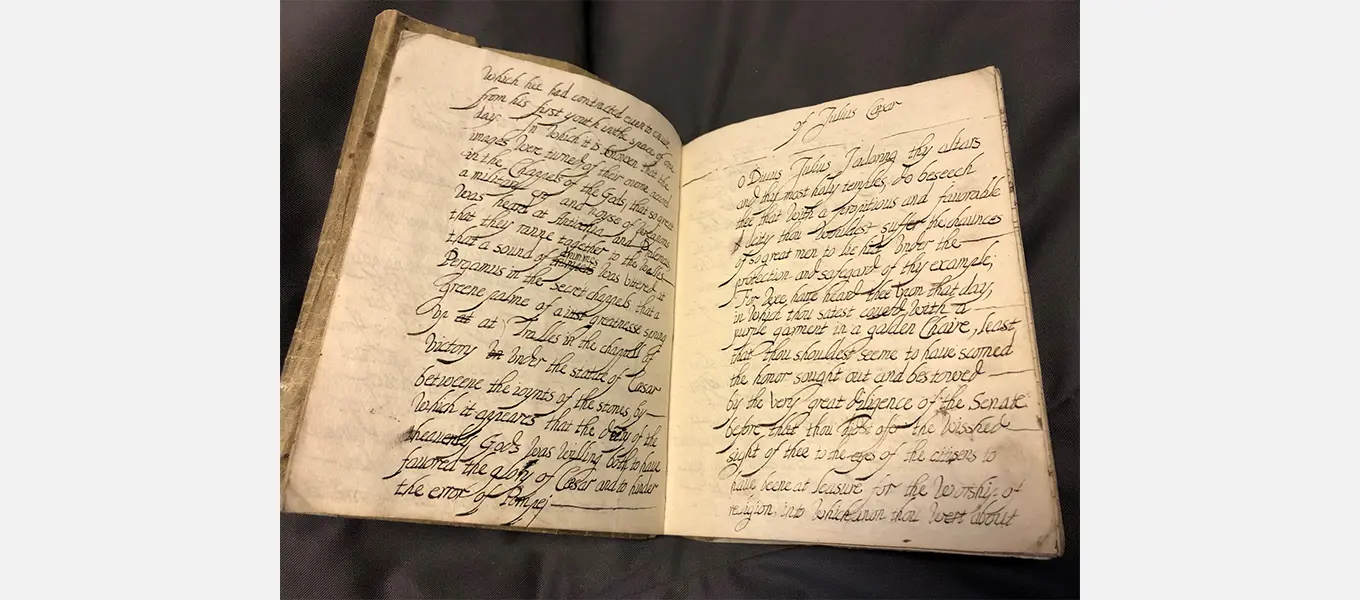 Which hee had contracted euen to
from his first youth in the space of one
day. In Which it is knowen that the
images Were turned of their owne accord
in the Channels of the Gods, that so great
a military cry and noyse of
Was heard at Antiochia and
that they ranne together to the Walles
that a sound of drummes Was vttered at
Pergamus in the secret channels, that a
greene palme of a iust greatnesse sprung
Vp at at Tralles in the channell of
Victory in Vnder the statue of Cæsar
betweene the ioynts of the stones by
Which it appeares that the deity of the
heauenly Gods Was Willing both to haue
fauored the glory of Cæsar and to hinder
the error of Pompej
of Julius Cæsar
O Diuus Julius J adoring thy altars
and thy most holy temples, do beseech
thee that With a propitious and fauorable
deity thou Wouldest suffer the chaunces
of so great men to lie hid Vnder the
protection and safegard of thy example;
For Wee haue heard thee Vpon that day,
in Which thou satest With a
purple garment in a golden Chaire, least
that thou shouldest seeme to haue scorned
the honor sought out and bestowed
by the Very great diligence of the Senate
before that thou offer the Wisshed
sight of thee to the eyes of the citisens to
haue beene at leasure for the Worship of
religion, into Which anon thou West about